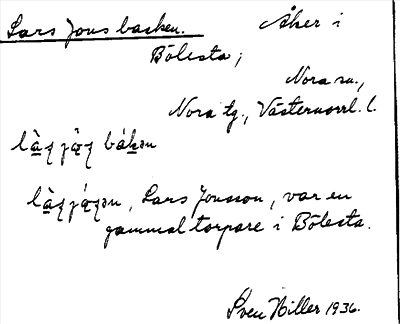 Lars Jons backen. Åker i
Bölesta;
Nora sn.,
Nora tg., Västernorrl. l.
bákən
Lars Jonsson, var en
gammal torpare i Bölesta.
Sven Hiller 1936.